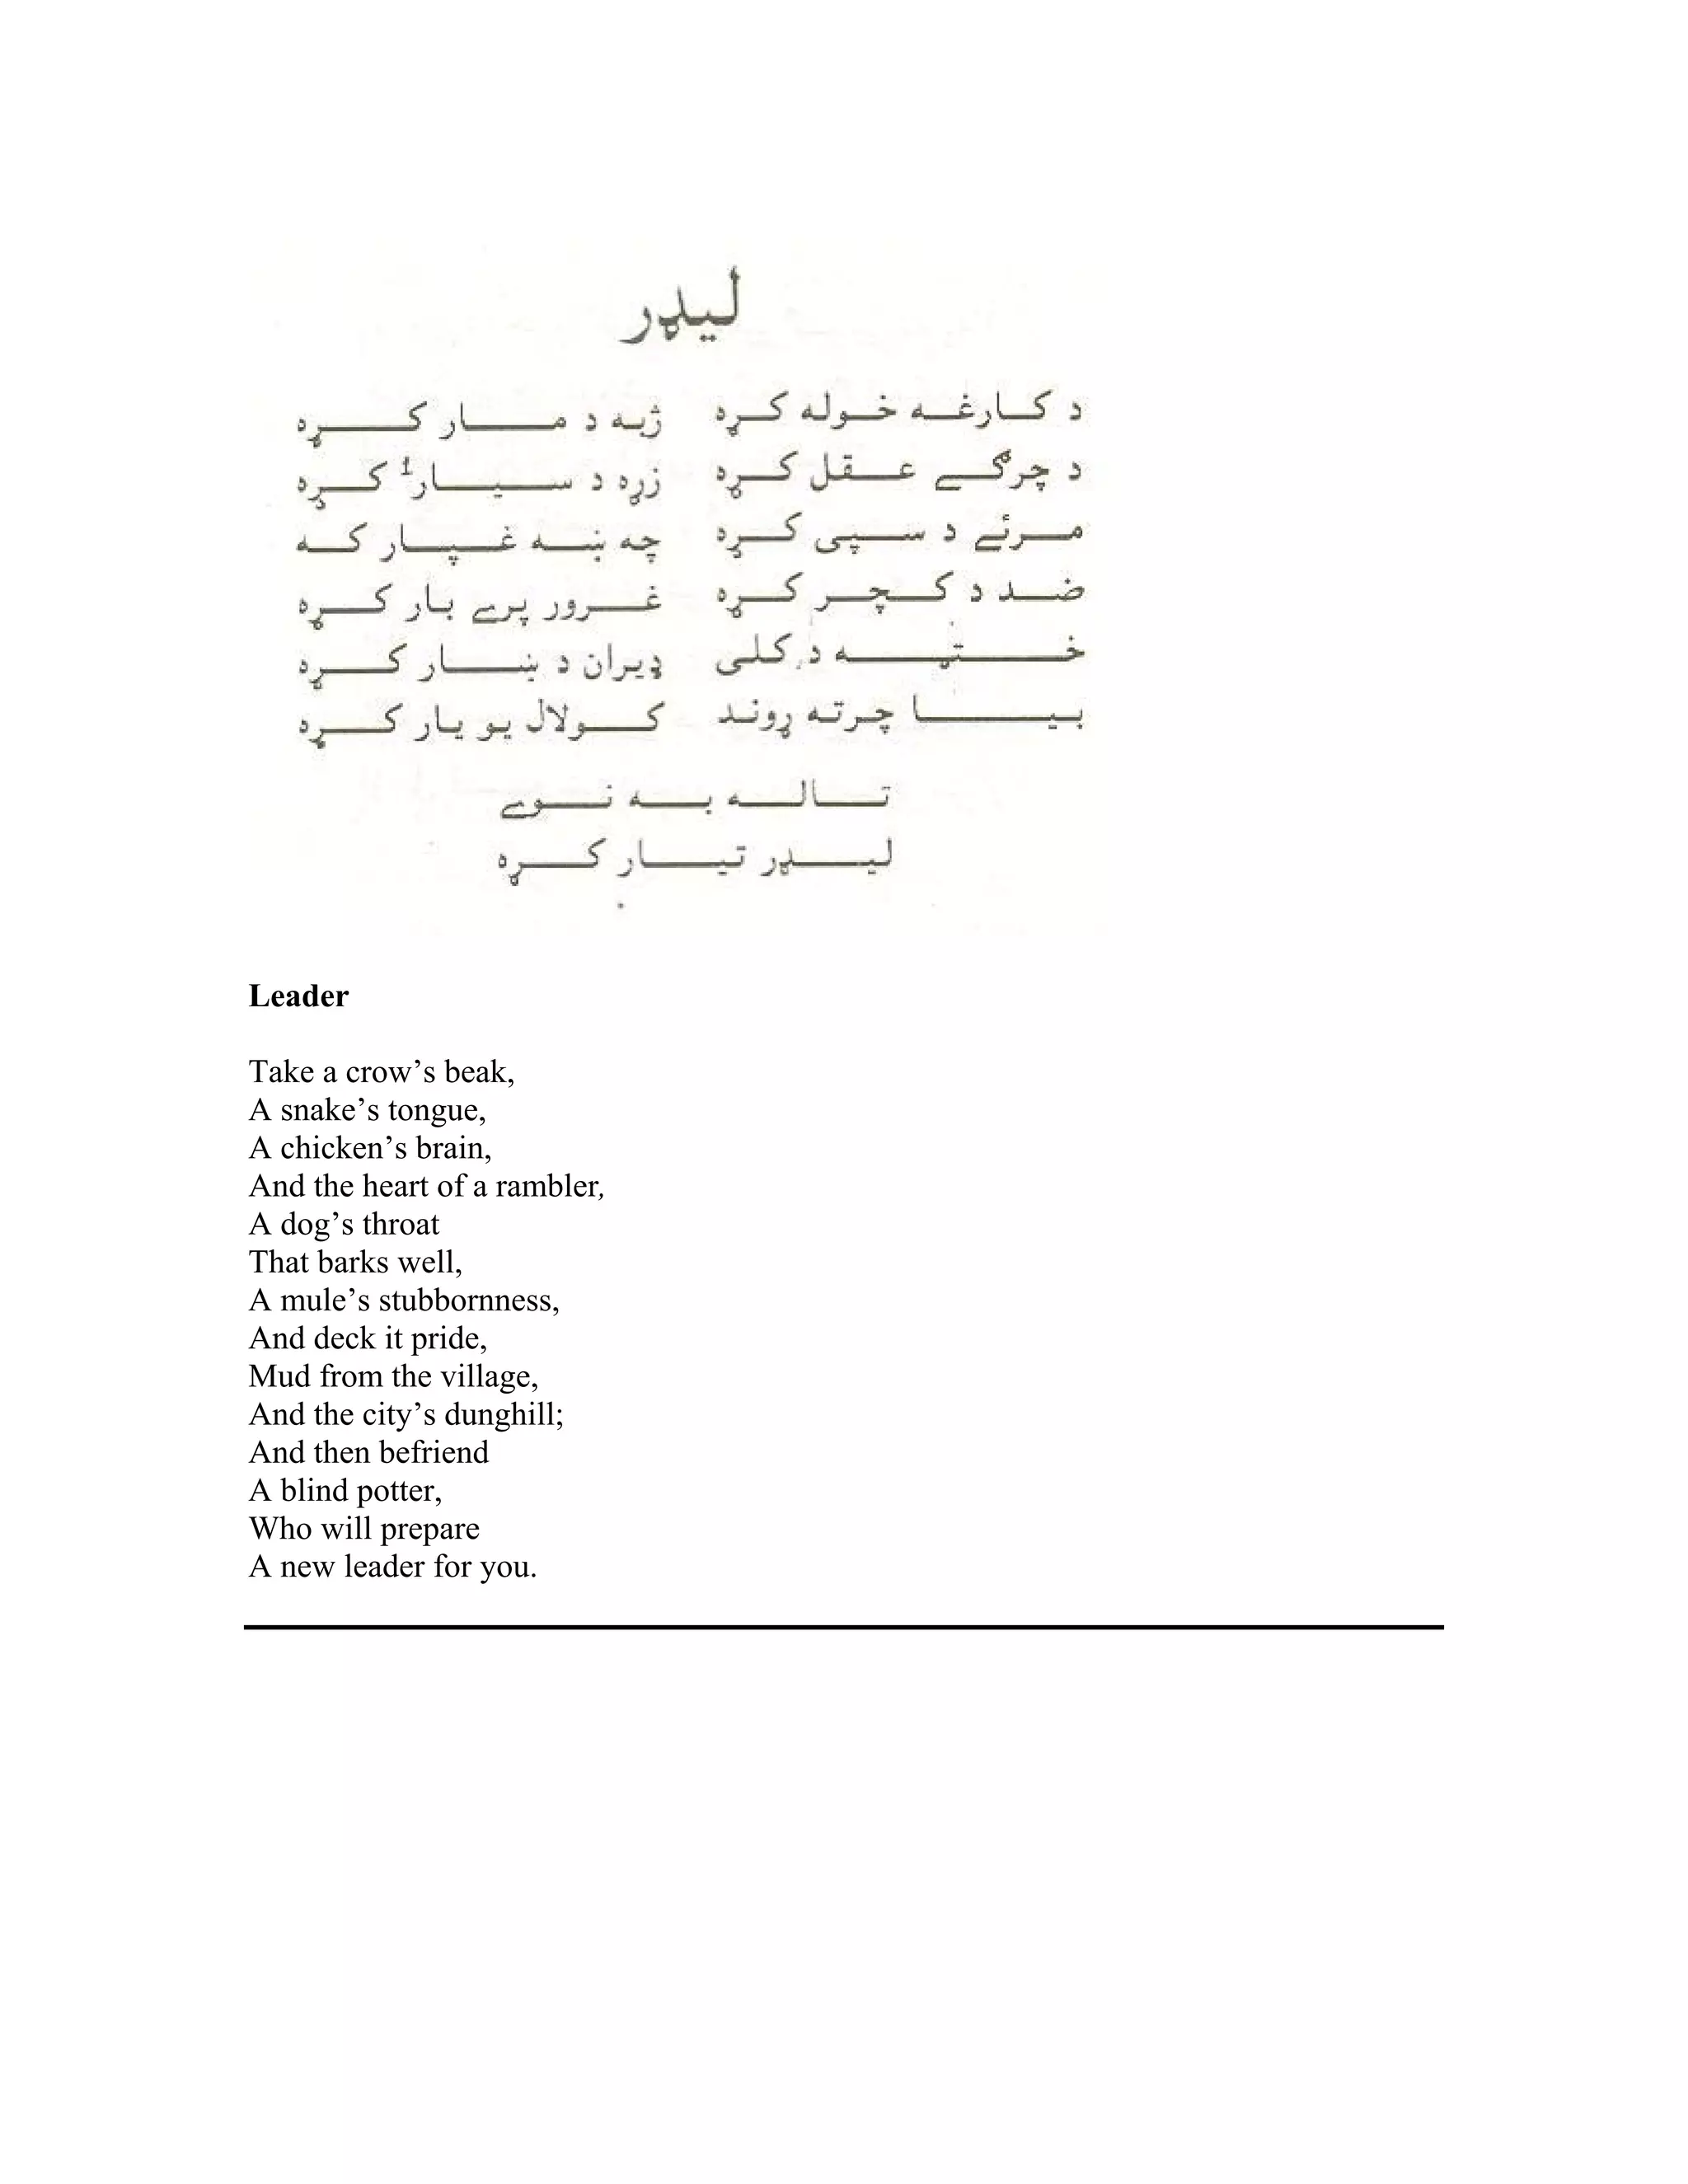 لیډر
د کارغه خوله کړه ژبه د مار کړه
د چرګے عقل کړه زړه د سیار¹ کړه
مرئے د سپی کړه چه ښه غپار که
ضد د کچر کړه غرور پرے بار کړه
خټه د کلی ډیران د ښار کړه
بیا چرته ړوند کولال یو یار کړه
تاله به نوے
لیډر تیار کړه
Leader
Take a crow’s beak,
A snake’s tongue,
A chicken’s brain,
And the heart of a rambler,
A dog’s throat
That barks well,
A mule’s stubbornness,
And deck it pride,
Mud from the village,
And the city’s dunghill;
And then befriend
A blind potter,
Who will prepare
A new leader for you.